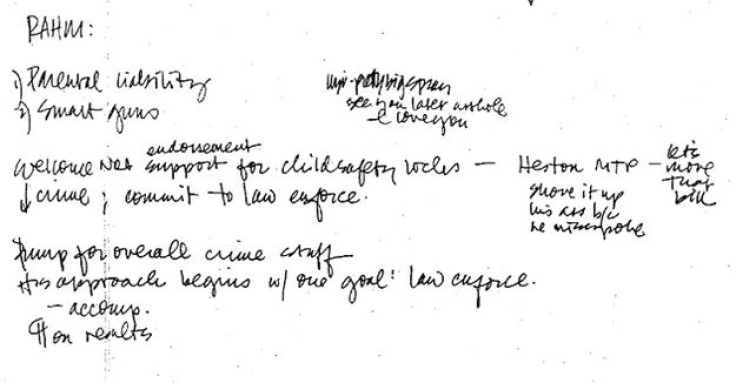 RAHM:
1) Parental liability
2) Smart guns
see you later asshole
- I love you
endorsement
Welcome NRA support for child safety locks — Heston MTP — let's move that bill
↓ crime; commit to law enforce.
shove it up
his ass b/c
he misspoke
Pump for overall crime stuff
His approach begins w/ one goal: law enforce.
- accomp.
¶ on results